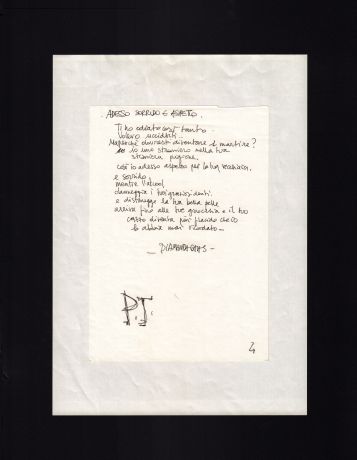 ADESSO SORRIDO E ASPETTO.
Ti ho odiato così tanto
Volevo ucciderti.
Ma perché dovresti diventare il martire?
Io sono straniero nella tua
stramberia
così io adesso aspetto per la tua vecchiaia,
e sorrido,
mentre l'alcool,
danneggia i tuoi grassi denti.
e distrugge la tua bella pelle
arriva fino alle tue ginocchia e il tuo
culo diventa più flaccido che
io abbia mai
— DIAMANDA GALAS —
P.J.
4